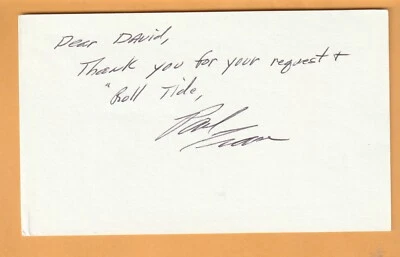 Dear David,
Thank you for your request +
"Roll Tide,
Paul Crane